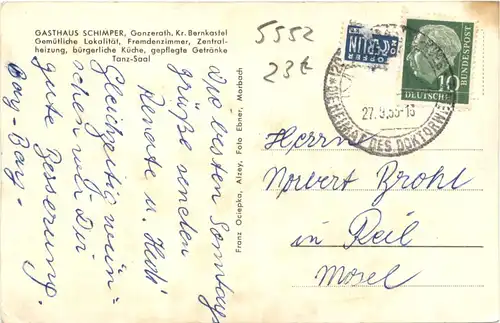 GASTHAUS SCHIMPER, Gonzerath, Kr. Bernkastel
Gemütliche Lokalität, Fremdenzimmer, Zentral-
heizung, bürgerliche Küche, gepflegte Getränke
Tanz-Saal
5552
23€
NOTOPFER
BERLIN
DEUTSCHE
BUNDESPOST
10
27.9.55-16
DIE HEIMAT DES DOKTORWEINES
Die besten Sonntags
grüße senden
Renate u. Hedi
Gleichzeitig wün-
schen wir Dir
gute Besserung.
Franz Ociepka, Alzey, Foto Ebner, Morbach
Herrn
Norbert Brohl
in Reil
Mosel